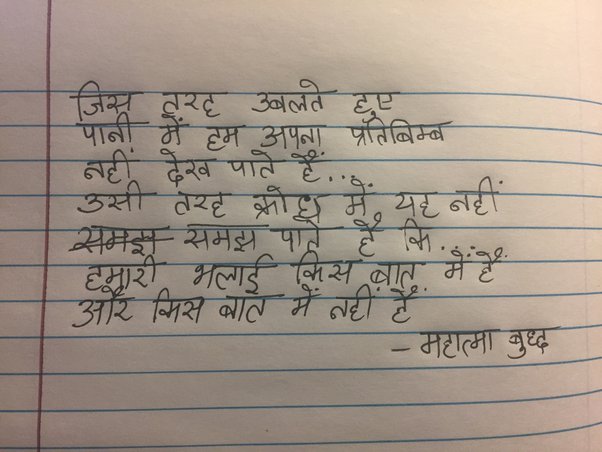 जिस तरह उबलते हुए
पानी में हम अपना प्रतिबिम्ब
नहीं देख पाते हैं...
उसी तरह क्रोध में यह नहीं
समझ समझ पाते हैं कि....
हमारी भलाई किस बात में है
और किस बात में नहीं है
- महात्मा बुध्द